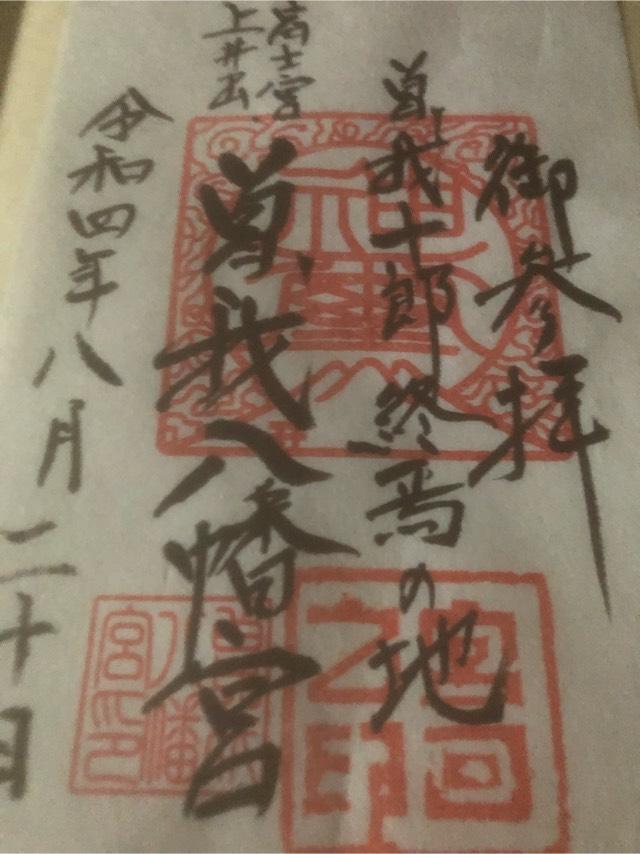 御参拝
曽我十郎終焉の地
富士宮
上井出
曽我八幡宮
令和四年八月二十日
宮司之印